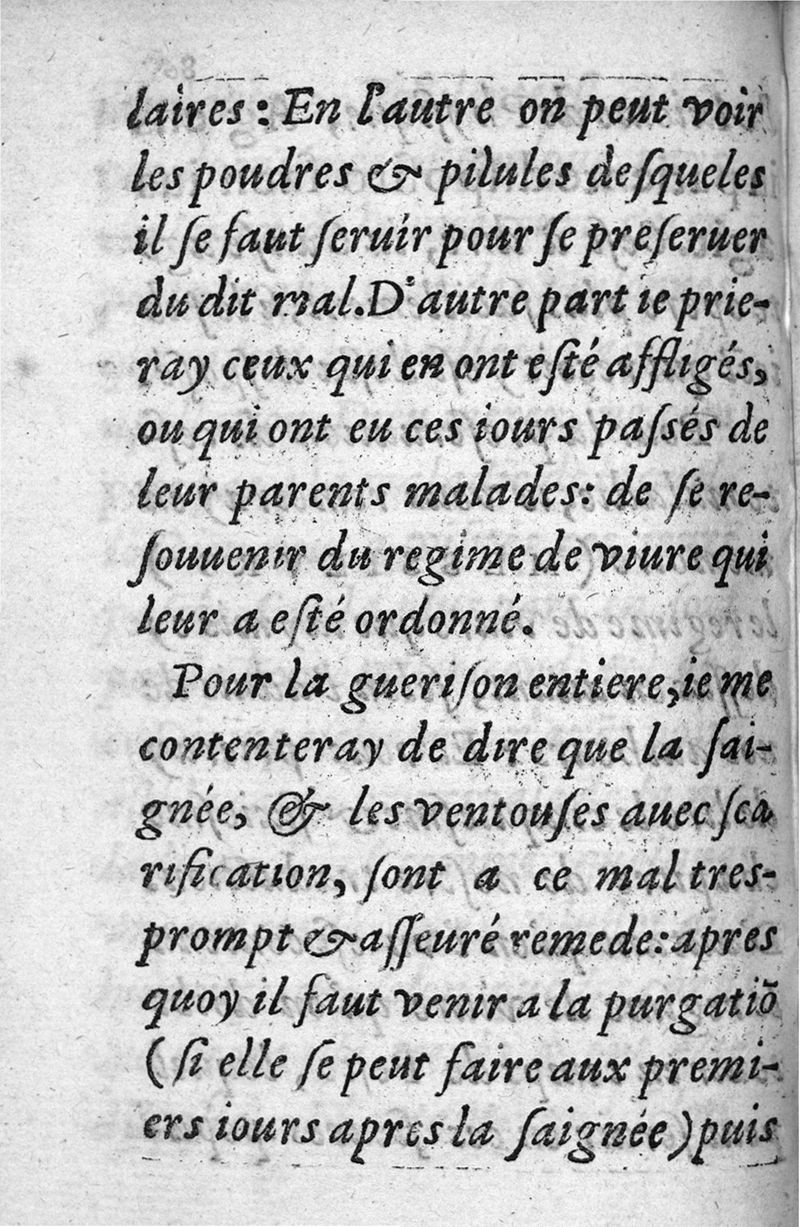 laires : En l'autre on peut voir
les poudres & pilules deſqueles
il ſe faut ſeruir pour ſe preſeruer
du dit mal. D'autre part ie prie-
ray ceux qui en ont eſté affligés,
ou qui ont eu ces iours paſsés de
leur parents malades: de ſe re-
ſouuenir du regime de viure qui
leur a eſté ordonné.
Pour la gueriſon entiere, ie me
contenteray de dire que la ſai-
gnée, & les ventouſes auec ſca
rification, ſont a ce mal tres-
prompt & aſſeuré remede: apres
quoy il faut venir a la purgatiō
( ſi elle ſe peut faire aux premi-
ers iours apres la ſaignée ) puis